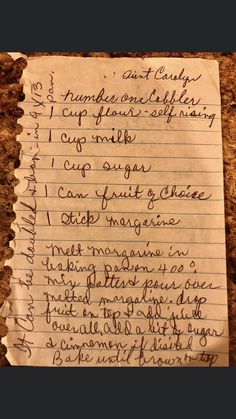 aunt Carolyn
number one Cobbler
1 cup flour - self rising
1 cup milk
1 cup sugar
1 can fruit of choice
1 stick margarine
Melt margarine in
baking pan on 400°
mix batter & pour over
melted margarine. drop
fruit on top & add juice
over all, add a bit of sugar
& cinnamon if disired
Bake until brown on top
* Can be doubled & bake in a 9 x 13
pan.